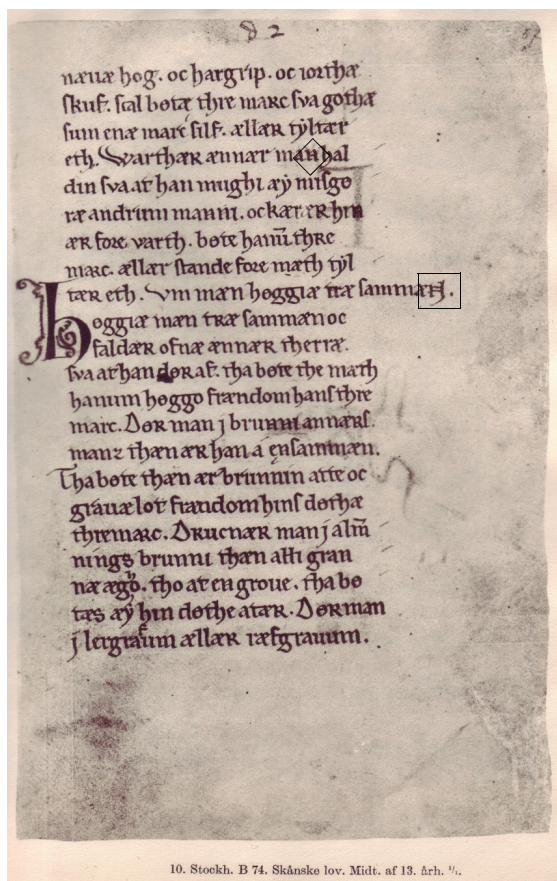 82
57
næuæ hog. oc hargrip. oc iorthæ
skuf. scal botæ thre marc sva gothæ
sum enæ marc silf. ællær tyltær
eth. Warthær ænnær man hal
din sva at han mughi æy misgo
ræ andrum manni. oc kær ær hin
ær fore varth. bote hanū thre
marc. ællær stande fore mæth tyl
tær eth. Vm mæn hoggiæ træ sammæn.
Hoggiæ mæn træ sammæn oc
faldær ofnæ ænnær therræ.
sva at han dør af. tha bote the mæth
hanum hoggo frændom hans thre
marc. Dør man j brunni annærs
manz thæn ær han á en sammæn.
Tha bote thæn ær brunnin atte oc
grauæ lot frændom hins døthæ
thre marc. Drucnær man j almæ̅
nings brunni thæn alli gran
næ ægo. tho at en grove. tha bo
tæs æy hin døthe atær. Dør man
j lergrafum ællær ræfgrauum.
10. Stockh. B 74. Skånske lov. Midt. af 13. årh. ¹/₁.